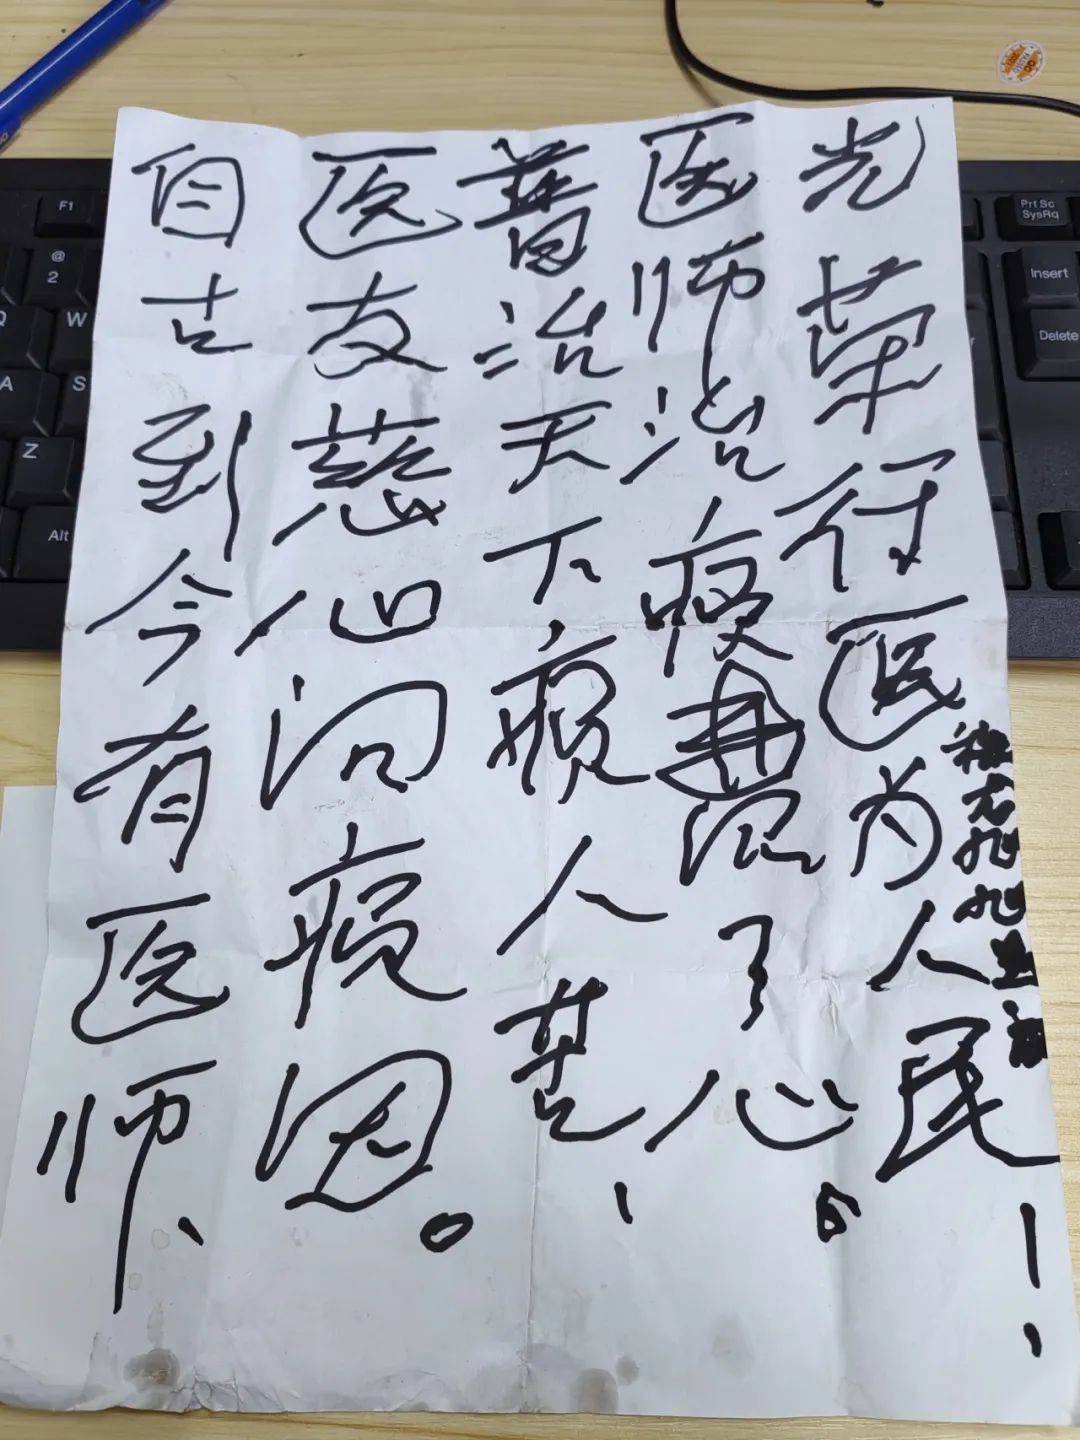 自古到今有医师、
医友慈心问病因。
普治天下病人苦、
医师治费了心。
光荣行医为人民！
F1
@
2
W
A
S
Z
Alt
Prt Sc
SysRq
Insert
Delete